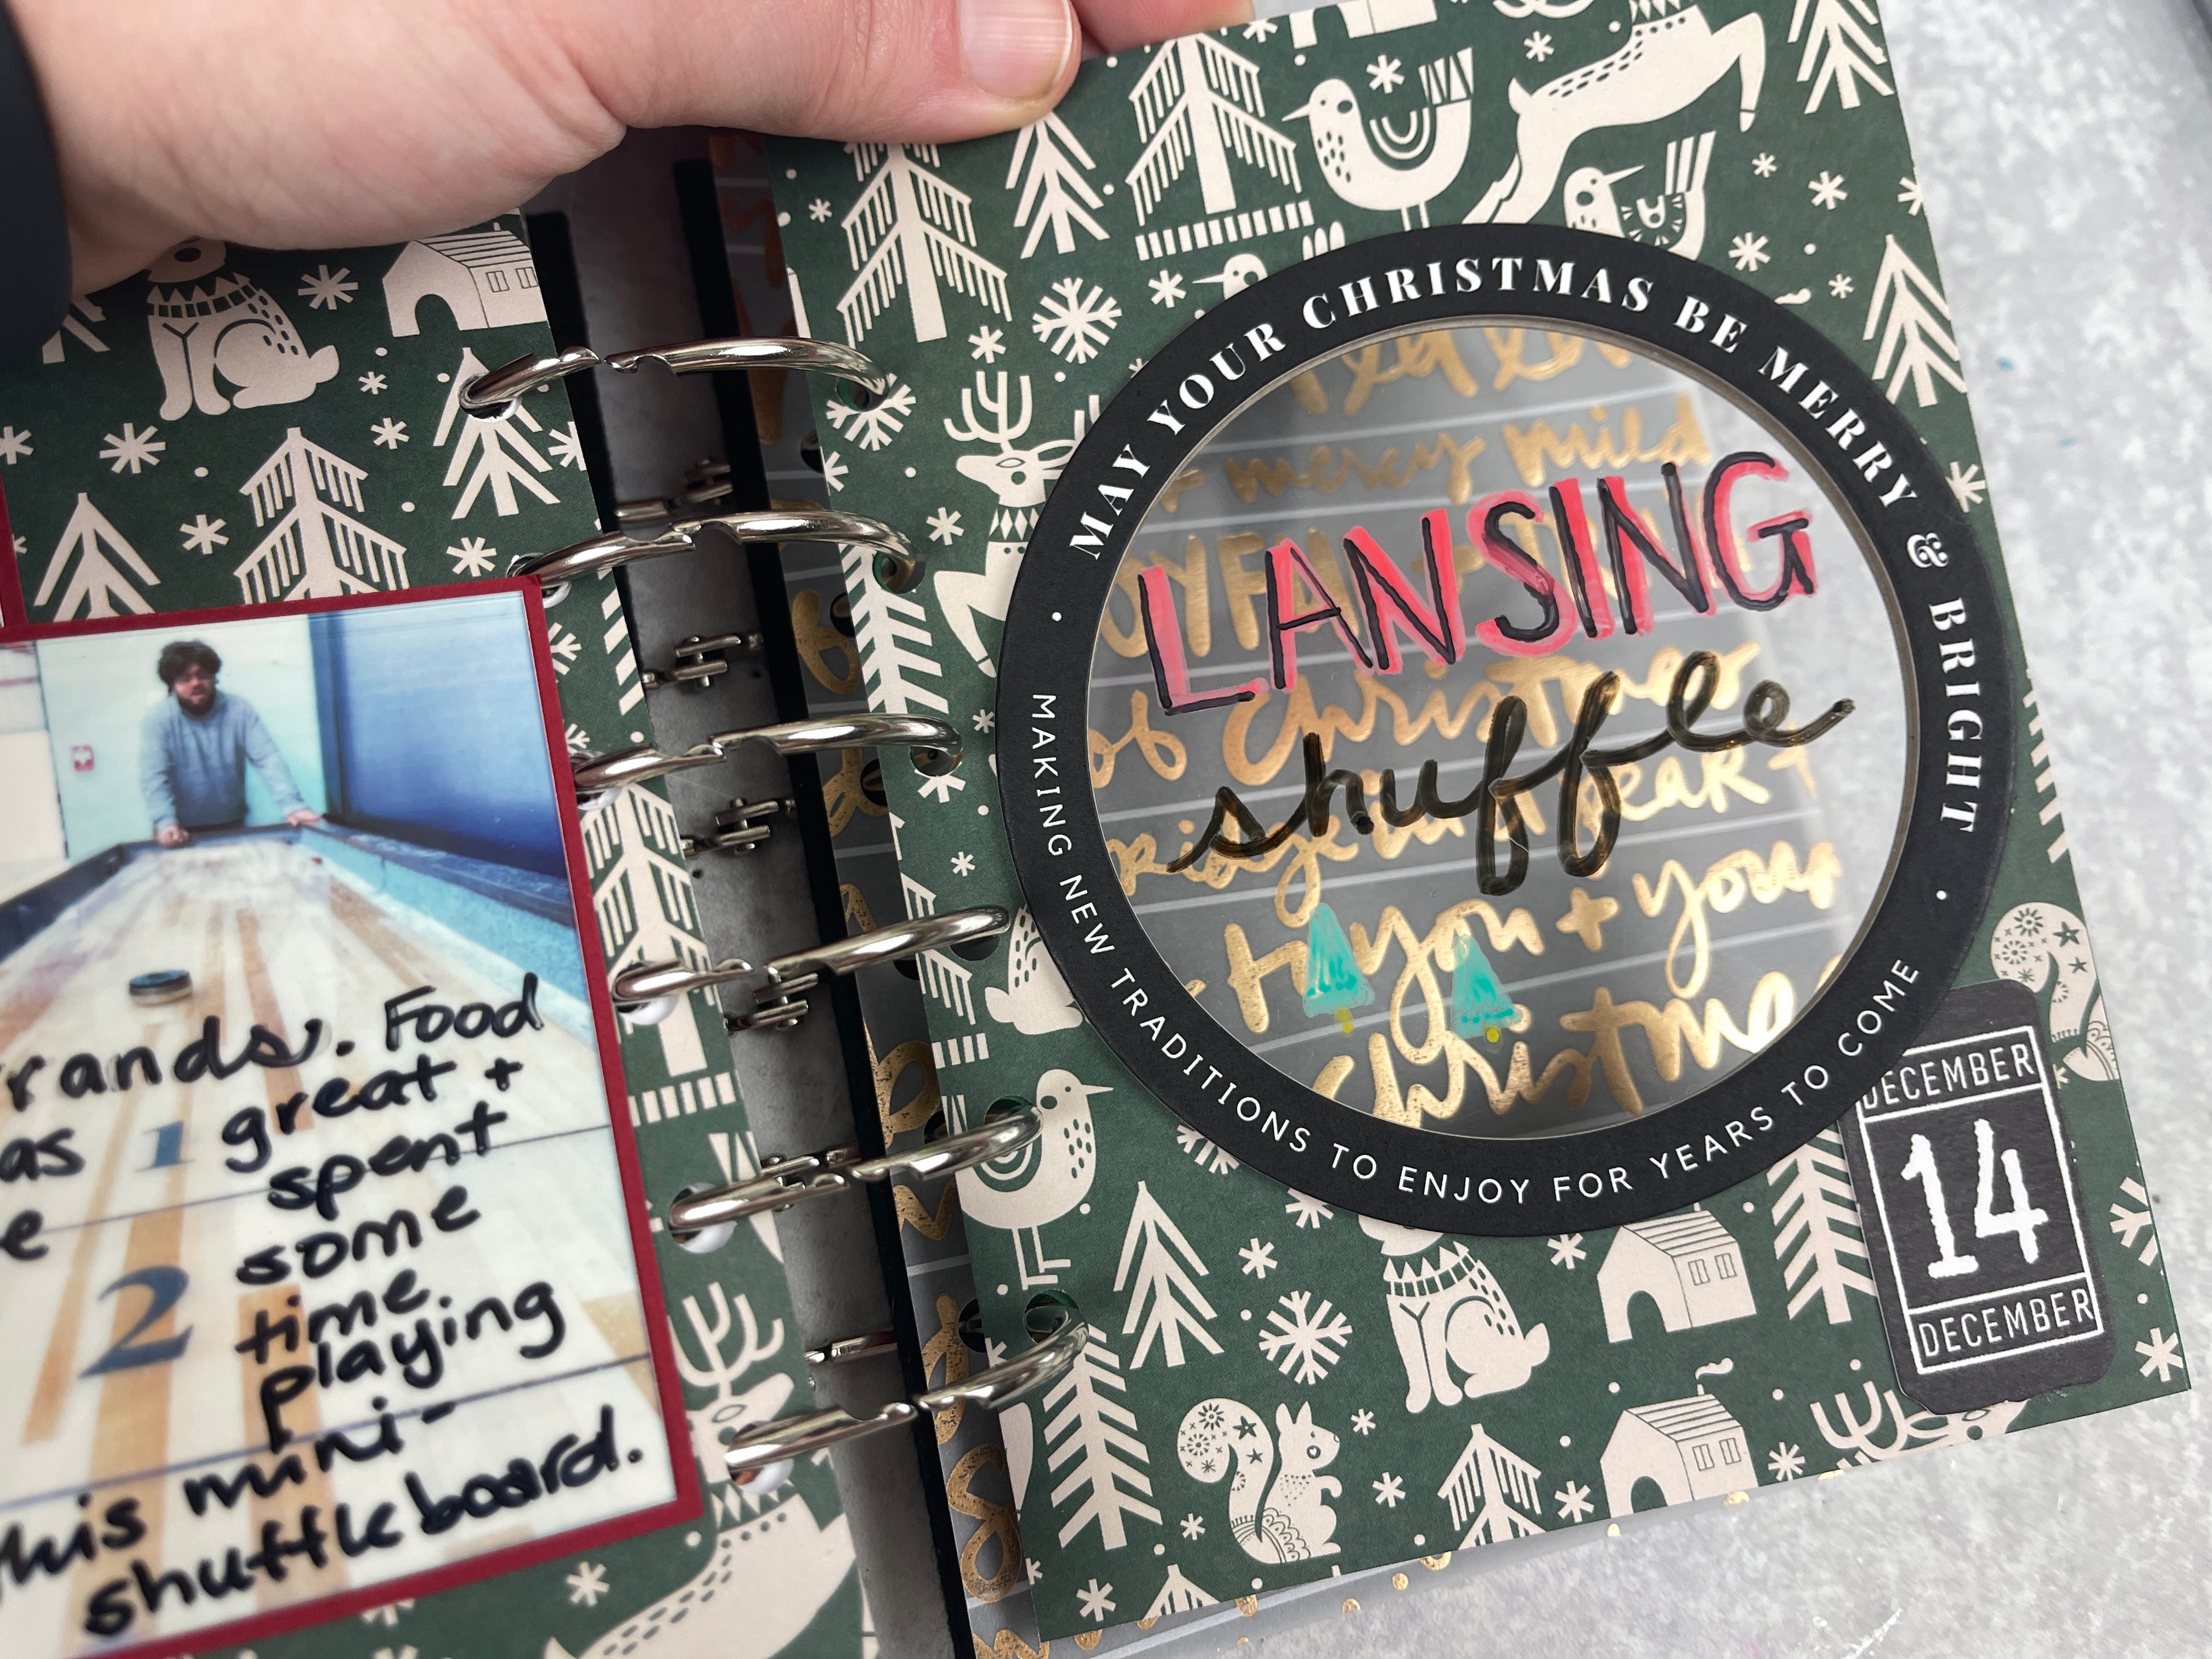 rands. Food
as 1 great +
spent
e some
2 time
playing
this mini-
shuffleboard.
MAY YOUR CHRISTMAS BE MERRY & BRIGHT
mercy mild
LANSING
JOYFUL
of Christmas
shuffle
year +
to you + your
Christmas
MAKING NEW TRADITIONS TO ENJOY FOR YEARS TO COME
DECEMBER
14
DECEMBER